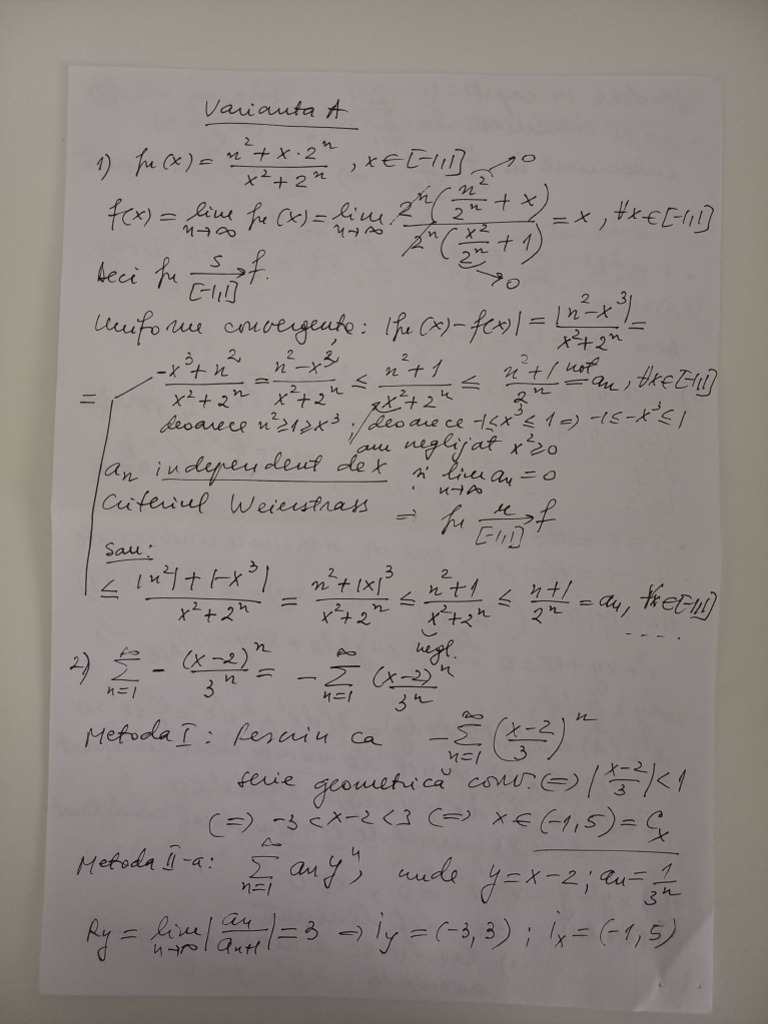 Varianta A
1) fn(x) = (n² + x·2ⁿ)/(x² + 2ⁿ), x∈[-1,1]
f(x) = lim n→∞ fn(x) = lim n→∞ 2ⁿ(n²/2ⁿ + x)/2ⁿ(x²/2ⁿ + 1) = x, ∀x∈[-1,1] →0 →0
Deci fn s→[-1,1] f.
Uniforma convergență: |fn(x) - f(x)| = |n² - x³|/(x² + 2ⁿ) =
= (-x³ + n²)/(x² + 2ⁿ) = (n² - x³)/(x² + 2ⁿ) ≤ (n² + 1)/(x² + 2ⁿ) ≤ (n² + 1)/2ⁿ not= an, ∀x∈[-1,1]
deoarece n² ≥ 1 ≥ x³ ; deoarece -1 ≤ x³ ≤ 1 ⇒ -1 ≤ -x³ ≤ 1
am neglijat x² ≥ 0
an independent de x și lim n→∞ an = 0
Criteriul Weierstrass ⇒ fn u→[-1,1] f
Sau:
≤ (|n²| + |-x³|)/(x² + 2ⁿ) = (n² + |x|³)/(x² + 2ⁿ) ≤ (n² + 1)/(x² + 2ⁿ) ≤ (n + 1)/2ⁿ = an, ∀x∈[-1,1]
negl. ....
2) ∞Σn=1 - (x-2)ⁿ/3ⁿ = - ∞Σn=1 (x-2)ⁿ/3ⁿ
Metoda I: Rescriu ca - ∞Σn=1 ((x-2)/3)ⁿ
serie geometrică conv. ⇔ |(x-2)/3| < 1
⇔ -3 < x-2 < 3 ⇔ x∈(-1,5) = Cx
Metoda II-a: ∞Σn=1 an yⁿ, unde y = x-2 ; an = 1/3ⁿ
Ry = lim n→∞ |an/an+1| = 3 ⇒ iy = (-3,3) ; ix = (-1,5)